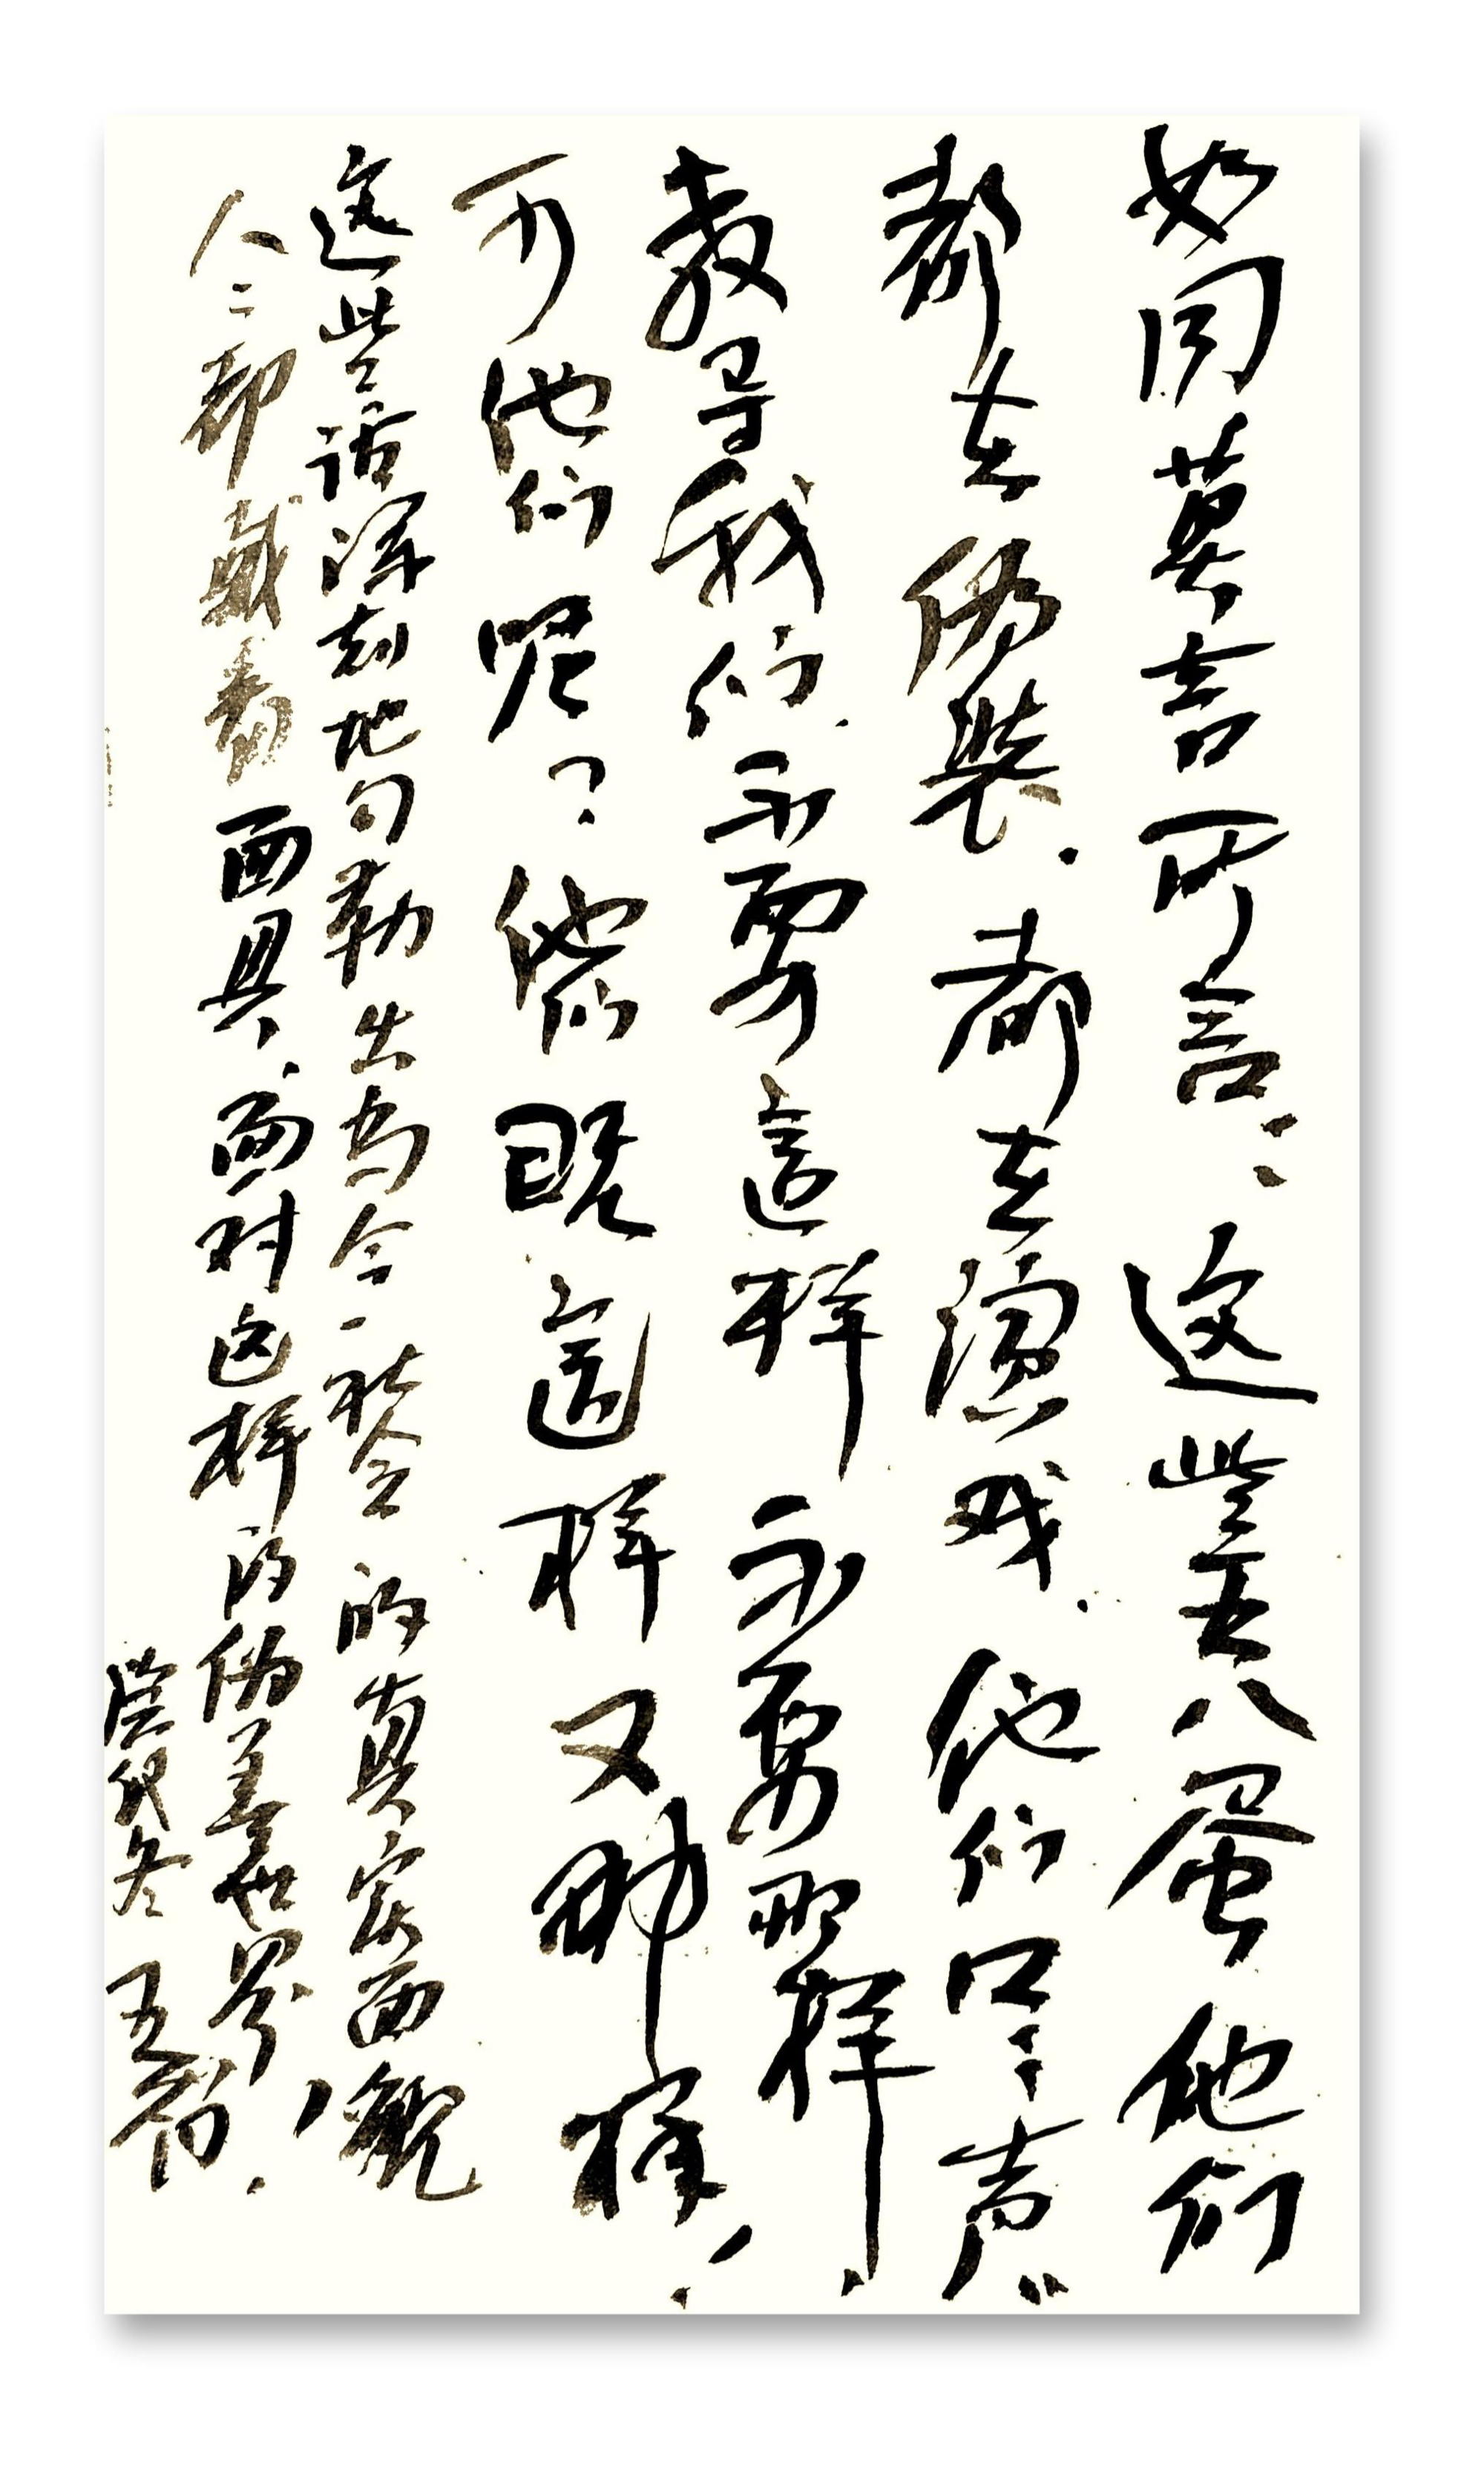 如同莫言所言：这些王八蛋他们
都在伪装，都在演戏，他们口口声声
教导我们，不要这样不要那样，
可他们呢？他们既这样又那样！
这些话深刻地勾勒出当今社会的真实面貌，
人人都戴着面具，面对这样的伪善世界